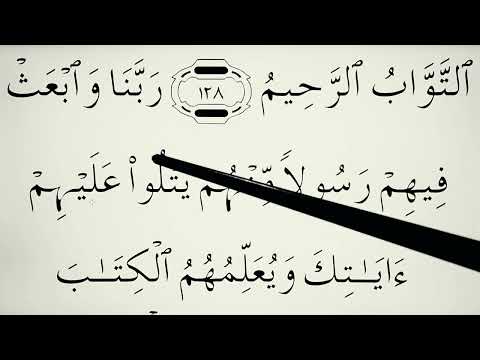 ٱلتَّوَّابُ ٱلرَّحِيمُ ١٢٨ رَبَّنَا وَٱبْعَثْ
فِيهِمْ رَسُولًا مِّنْهُمْ يَتْلُوا۟ عَلَيْهِمْ
ءَايَـٰتِكَ وَيُعَلِّمُهُمُ ٱلْكِتَـٰبَ